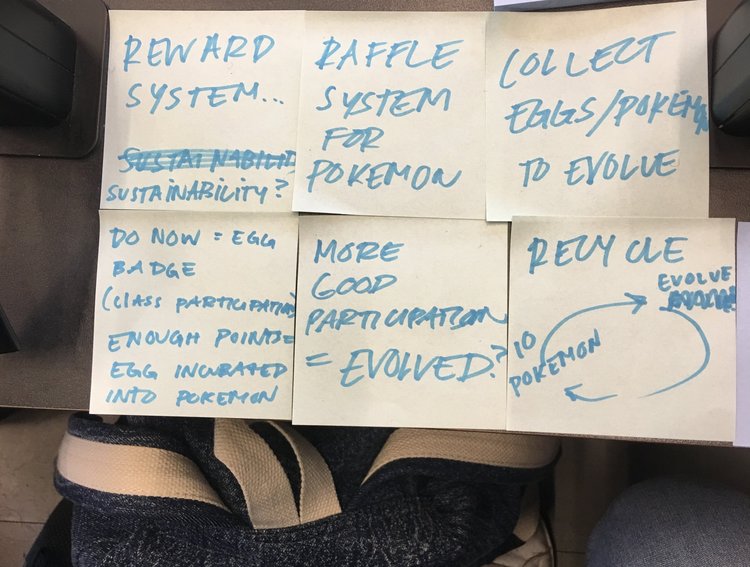 REWARD
SYSTEM...
SUSTAINABILIT
SUSTAINABILITY?
RAFFLE
SYSTEM
FOR
POKEMON
COLLECT
EGGS/POKEMON
TO EVOLVE
DO NOW = EGG
BADGE
(CLASS PARTICIPATION)
ENOUGH POINTS=
EGG INCUBATED
INTO POKEMON
MORE
GOOD
PARTICIPATION
= EVOLVED?
RECYCLE
EVOLVE
10
POKEMON